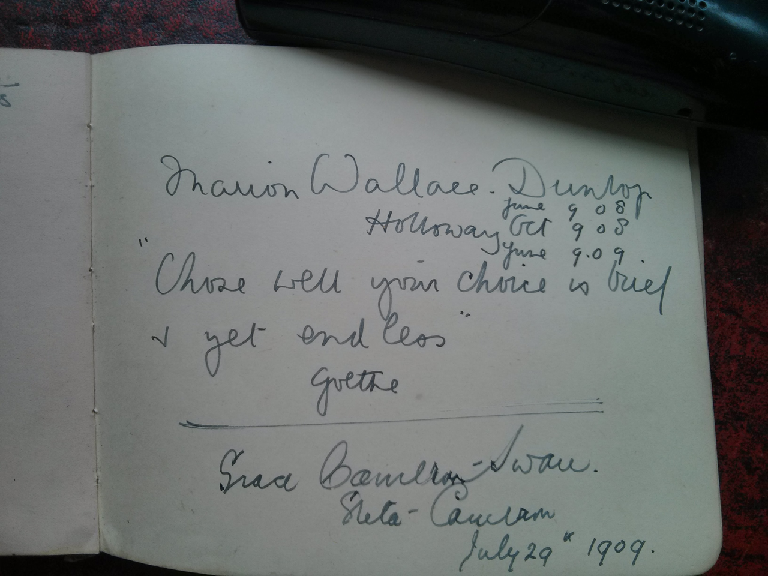 Marion Wallace-Dunlop
June 9 08
Holloway Oct 9 08
June 9.09
"Chose well your choice is brief
& yet endless"
Goethe
Grace Cameron-Swan.
Cameron
July 29th 1909.